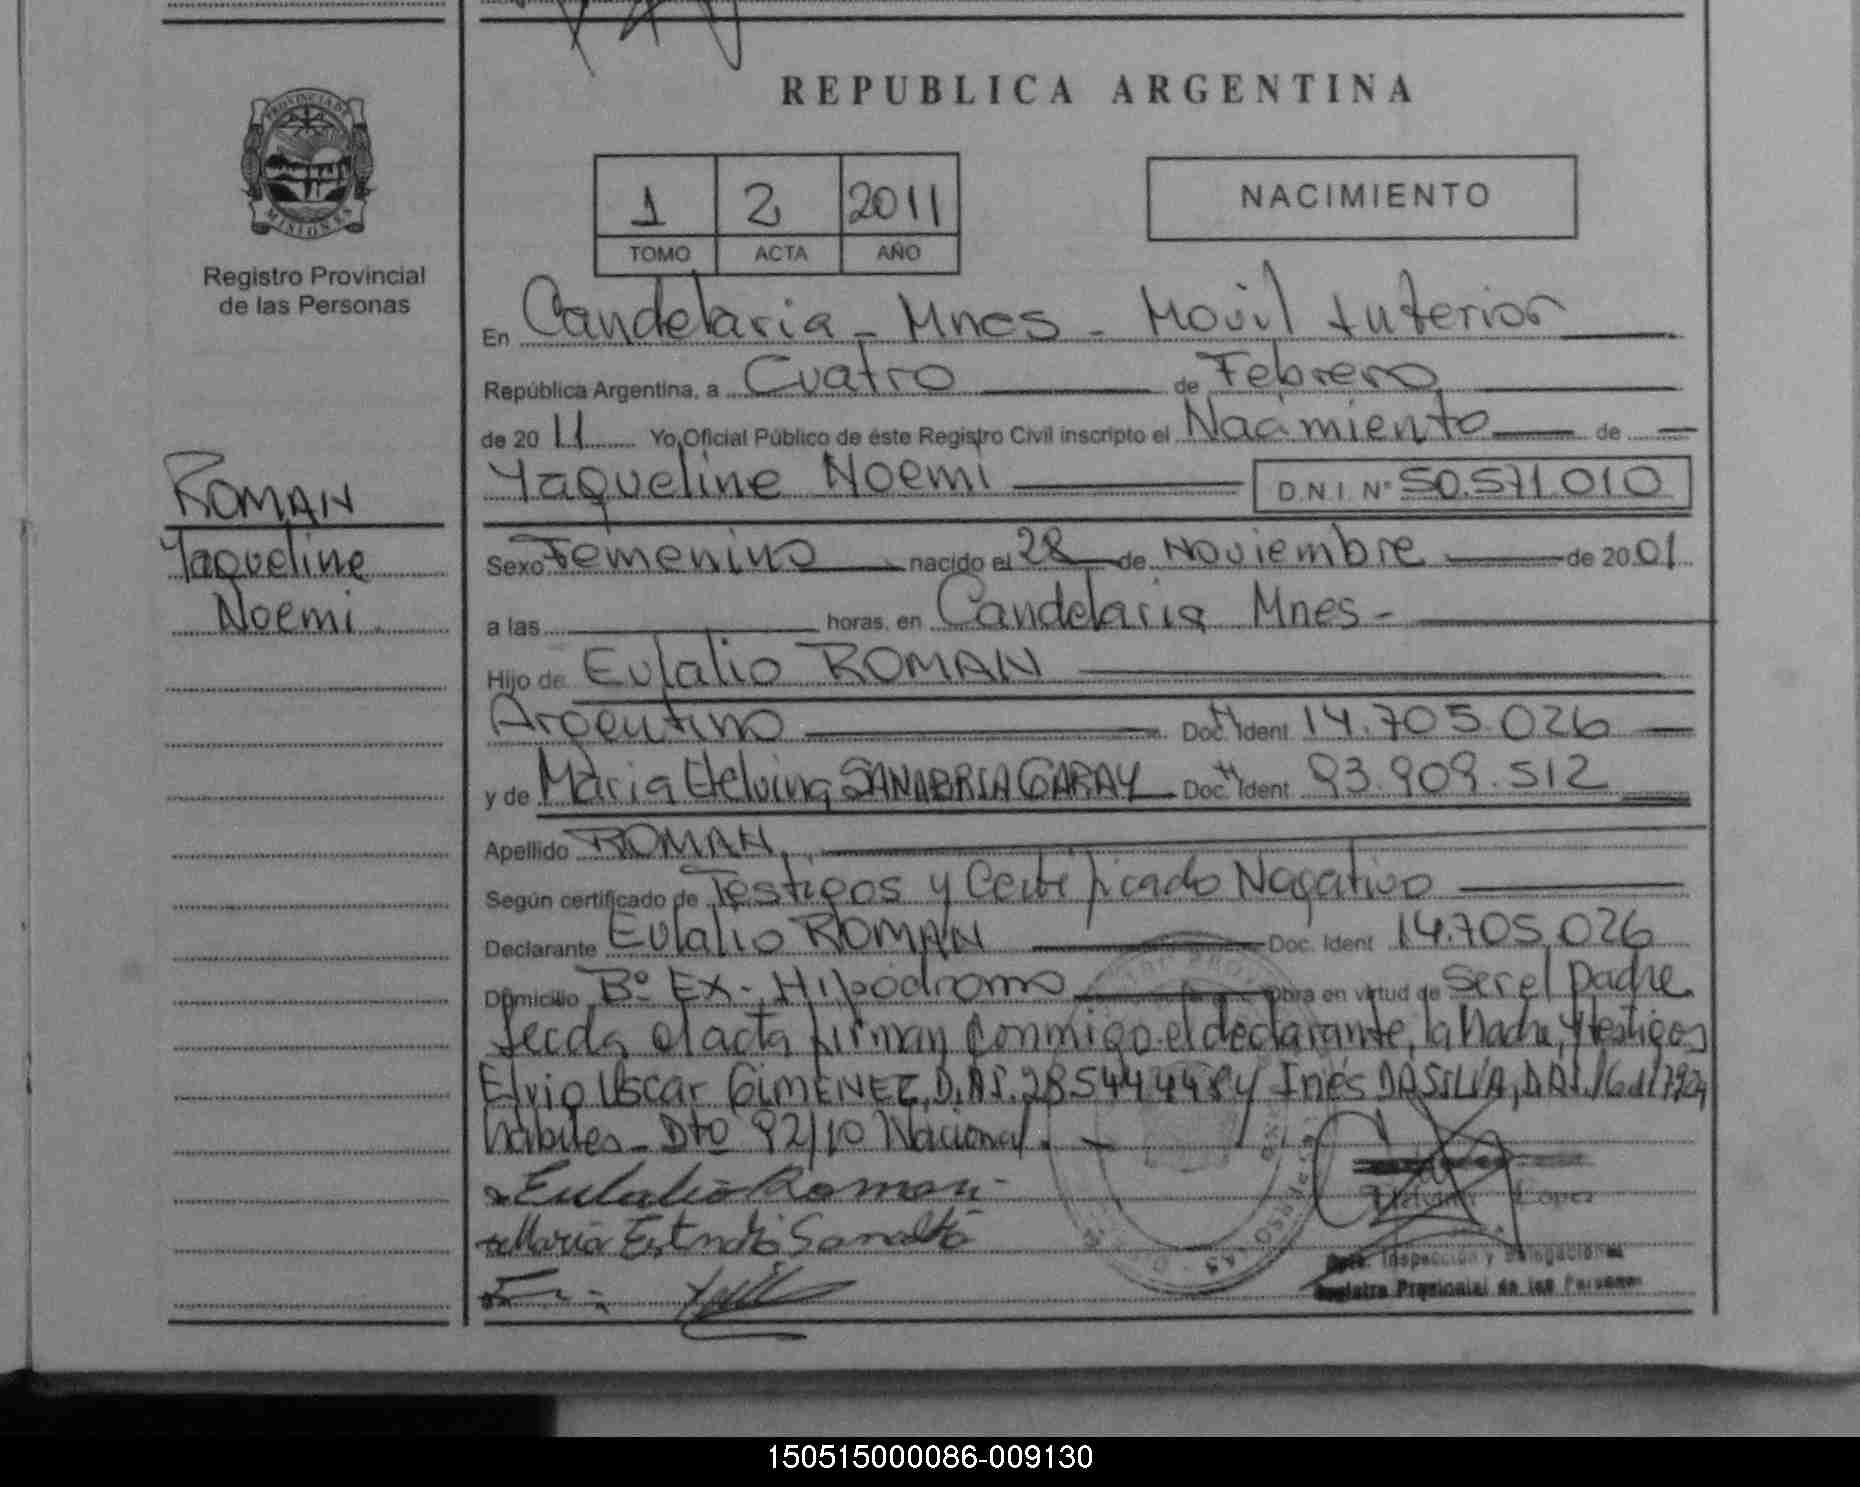 REPUBLICA ARGENTINA
PROVINCIA DE
MISIONES
Registro Provincial
de las Personas
1 2 2011
TOMO ACTA AÑO
NACIMIENTO
En Candelaria - Mnes - Movil Interior
República Argentina, a Cuatro de Febrero
de 20 11 Yo, Oficial Público de éste Registro Civil inscripto el Nacimiento de
Yaqueline Noemi D.N.I. Nº 50.571.010
ROMAN
Yaqueline
Noemi
Sexo Femenino nacido el 28 de Noviembre de 20 01
a las horas, en Candelaria Mnes -
Hijo de Eulalio ROMAN
Argentino Doc. Ident 14.705.026
y de Maria Etelvina SANABRIA GARAY Doc. Ident 93.909.512
Apellido ROMAN
Según certificado de Testigos y Certificado Negativo
Declarante Eulalio ROMAN Doc. Ident 14.705.026
Domicilio Bº Ex - Hipódromo Obra en virtud de Ser el padre
Leida el acta firman conmigo el declarante, la Madre, y testigos
Elvio Oscar GIMENEZ, D.N.I. 28544448 y Inés DASILVA, D.N.I.
habiles - Dto 92/10 Nacional.
Eulalio Roman
Maria
Lopez
Dpto. Inspección y Delegaciones
Registro Provincial de las Personas
150515000086-009130